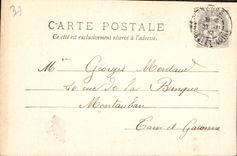 37
CARTE POSTALE
Ce côté est exclusivement réservé à l'adresse.
M Georges Montaud
20 rue de la Banque
Montauban
Tarn et Garonne